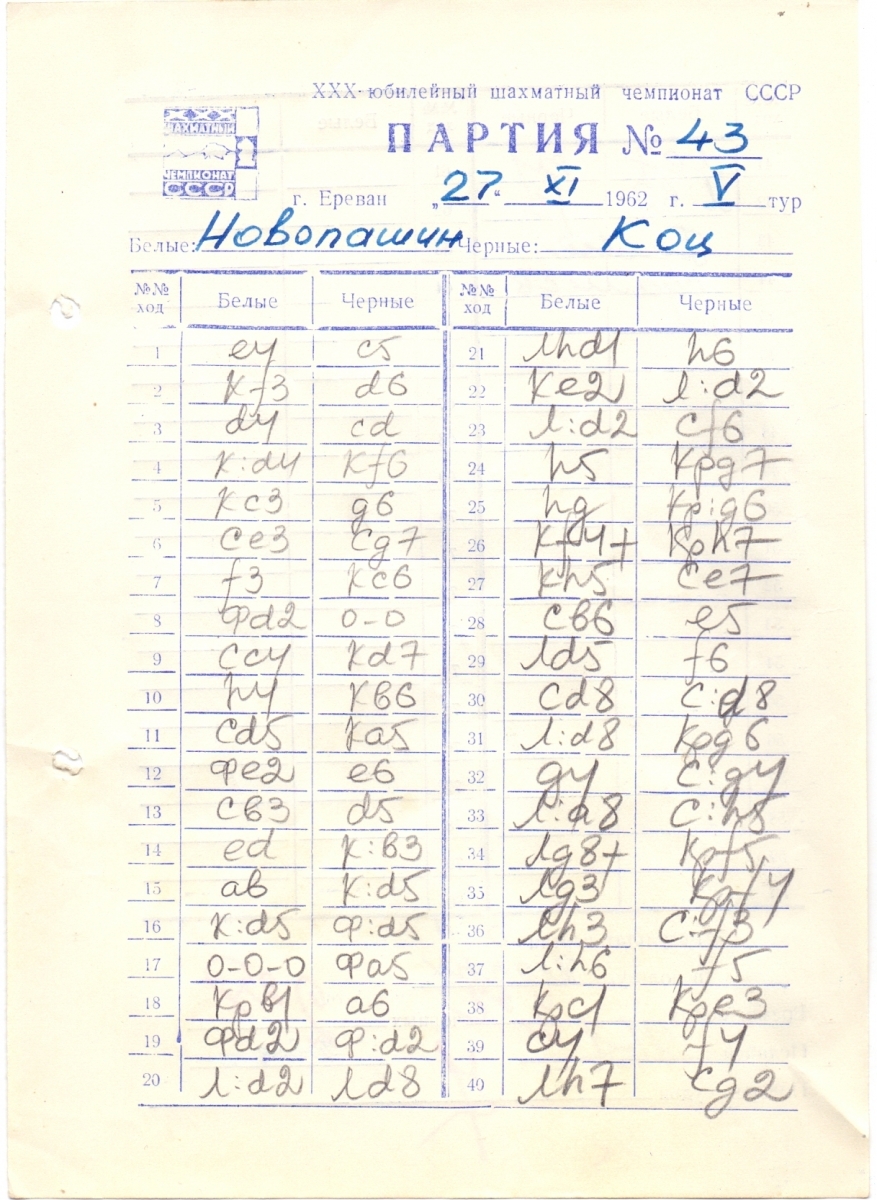 XXX-юбилейный шахматный чемпионат СССР
ШАХМАТНЫЙ
ЧЕМПИОНАТ
СССР
ПАРТИЯ № 43
г. Ереван „27“ XI 1962 г. V тур
Белые: Новопашин Черные: Коц
№№ ход Белые Черные №№ ход Белые Черные
1 e4 c5 21 Лhd1 h6
2 Кf3 d6 22 Кe2 Л:d2
3 d4 cd 23 Л:d2 Сf6
4 К:d4 Кf6 24 h5 Крg7
5 Кc3 g6 25 hg Кр:g6
6 Сe3 Сg7 26 Кf4+ Крh7
7 f3 Кc6 27 Кh5 Сe7
8 Фd2 0-0 28 Св6 e5
9 Сc4 Кd7 29 Лd5 f6
10 h4 Кв6 30 Сd8 С:d8
11 Сd5 Кa5 31 Л:d8 Крg6
12 Фe2 e6 32 g4 С:g4
13 Св3 d5 33 Л:a8 С:h5
14 ed К:в3 34 Лg8+ Крf5
15 ав К:d5 35 Лg3 Крf4
16 К:d5 Ф:d5 36 Лh3 С:f3
17 0-0-0 Фa5 37 Л:h6 f5
18 Крв1 a6 38 Крc1 Крe3
19 Фd2 Ф:d2 39 c4 f4
20 Л:d2 Лd8 40 Лh7 Сg2